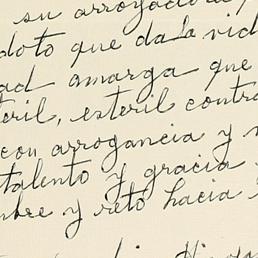 su arroyador
doto que da la vid
ad amarga que
éril, esteril contra
con arrogancia y
talento y gracia
bre y reto hacia